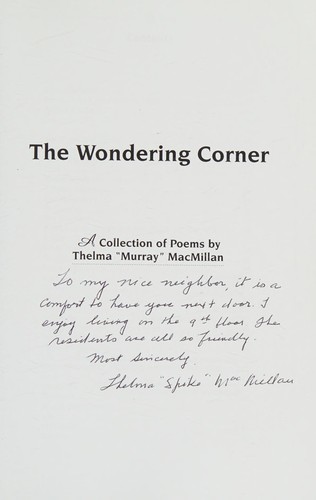 The Wondering Corner
A Collection of Poems by
Thelma "Murray" MacMillan
To my nice neighbor, it is a
comfort to have you next door. I
enjoy living on the 9th floor. The
residents are all so friendly.
Most Sincerely
Thelma "Spike" MacMillan